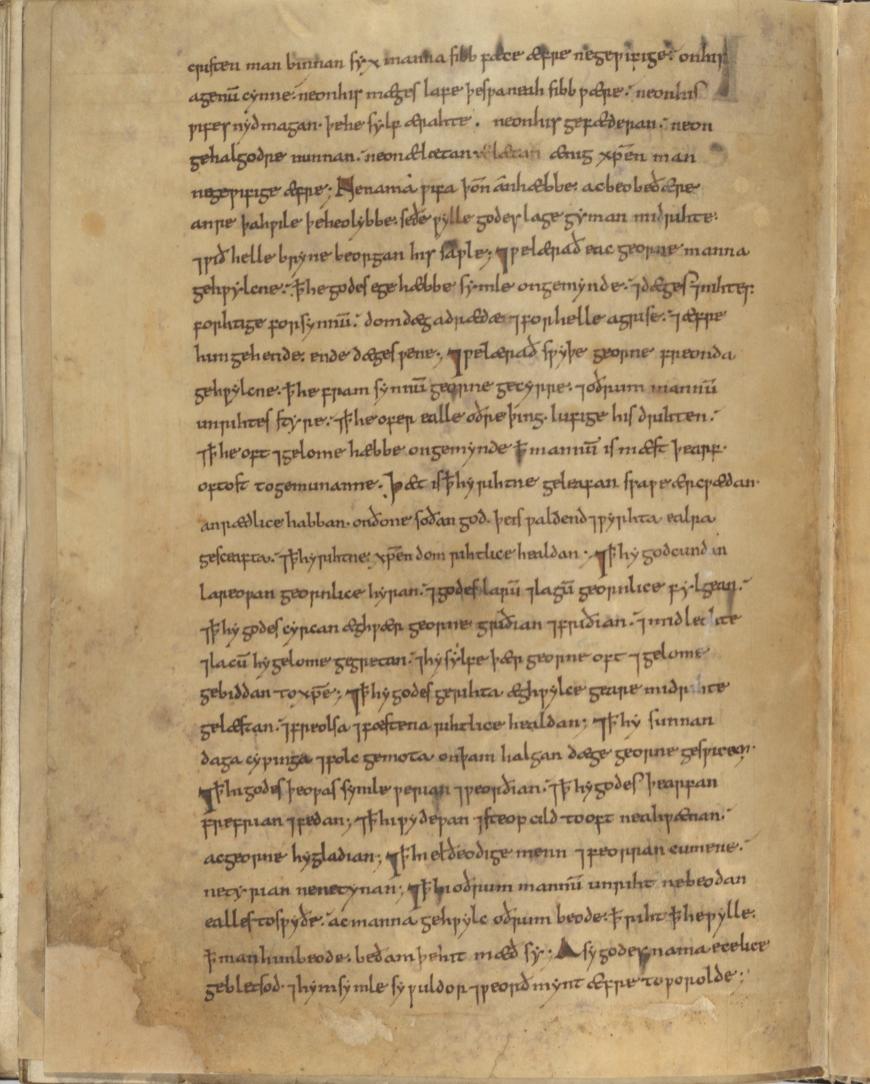 cristen man binnan syx manna sibb fæce æfre negeƿifige· onhis
agenū cynne· neonhis mæges lafe þespaneah sibb ƿære· neonhis
ƿifes nydmagan· þehe sylf ærahte· neonhis gefæderan· neon
gehalgodre nunnan· neonælætan ænig xp̄en man
negeƿifige æfre; Nenamá ƿifa þoñ án hæbbe· acbeobeðære
anre þahƿile þeheolybbe· seðe ƿylle godes lage gyman midrihte·
⁊ƿið helle bryne beorgan his saƿle; ⁊ƿelærað eac georne manna
gehƿylcne· ꝥhe godes ege hæbbe symle ongemynde· ⁊dæges ⁊nihtes
forhtige forsynnū· domdæg adræde ⁊forhelle agrise· ⁊æfre
himgehende· ende dæges ƿene; ⁊ƿelærað sƿyþe georne freonda
gehƿylcne· ꝥhe fram synnū georne gecyrre· ⁊oðrum mannū
unrihtes styre· ⁊ꝥhe ofer ealle oðre þing· lufige his drihten·
⁊ꝥhe oft ⁊gelome hæbbe ongemynde ꝥmannū is mæst þearf·
oftost togemunanne· Þæt isꝥhy rihtne geleafan sƿaƿe ærcƿædan·
anrædlice habban· onðone soðan god· þeis ƿaldend ⁊ƿyrhta ealra
gesceafta· ⁊ꝥhyrihtne xp̄en dom rihtlice healdan· ⁊ꝥhy godcundan
lareoƿan geornlice hyran· ⁊godes larū ⁊lagū geornlice fylgean·
⁊ꝥhy godes cyrcan æghƿær georne griðian ⁊friðian· ⁊midleohte
⁊lacū hygelome gegretan· ⁊hysylfe þær georne oft ⁊gelome
gebiddan toxp̄e; ⁊ꝥhy godes gerihta æghƿylce geare midrihte
gelæstan· ⁊freolsa ⁊fæstena rihtlice healdan; ⁊ꝥhy sunnan
daga cypinga ⁊folc gemota onþam halgan dæge georne gesƿican·
⁊ꝥhi godes þeoƿas symle ƿerian ⁊ƿeorðian· ⁊ꝥhygodes þearfan
frefrian ⁊fedan; ⁊ꝥhi ƿydeƿan ⁊steop cild tooft neahƿænan·
acgeorne hygladian; ⁊ꝥhi elðeodige menn ⁊feorran cumene·
netyrian nenetynan; ⁊ꝥhi oðrum mannū unriht nebeodan
ealles tosƿyðe· acmanna gehƿylc oðrum beode· ꝥriht ꝥheƿylle·
ꝥmanhimbeode· beðam þehit mæð sy; A sy godes nama ecelice
gebletsod· ⁊hym symle sy ƿuldor ⁊ƿeorðmynt æfre toƿorolde;